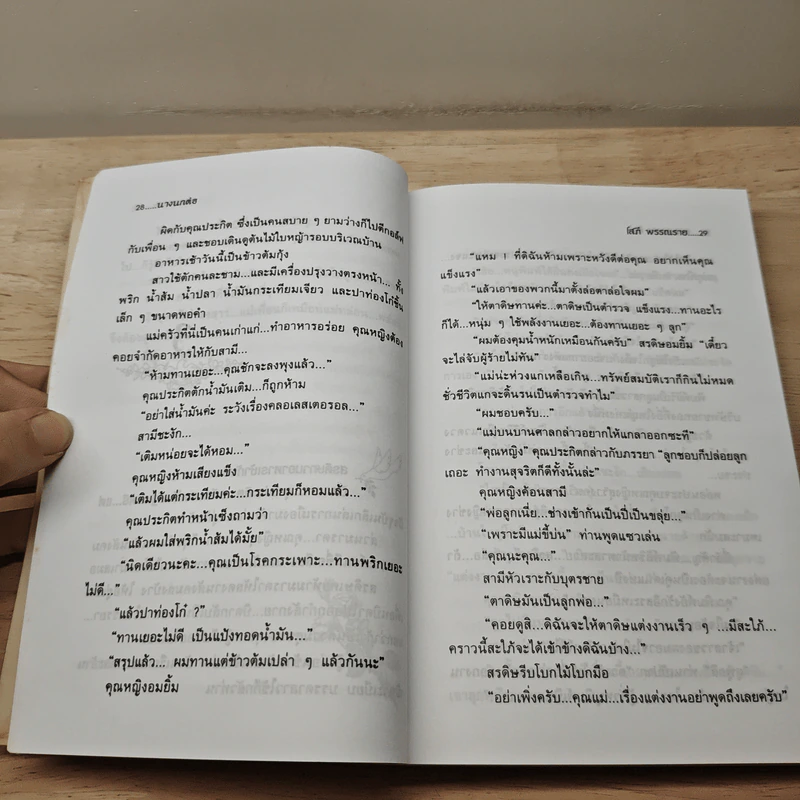 28.....นางนกต่อ
ผิดกับคุณประกิต ซึ่งเป็นคนสบาย ๆ ยามว่างก็ไปตีกอล์ฟ
กับเพื่อน ๆ และชอบเดินดูต้นไม้ใบหญ้ารอบบริเวณบ้าน
อาหารเช้าวันนี้เป็นข้าวต้มกุ้ง
สาวใช้ตักคนละชาม...และมีเครื่องปรุงวางตรงหน้า... ทั้ง
พริก น้ำส้ม น้ำปลา น้ำมันกระเทียมเจียว และปาท่องโก๋ชิ้น
เล็ก ๆ ขนาดพอคำ
แม่ครัวที่นี่เป็นคนเก่าแก่...ทำอาหารอร่อย คุณหญิงต้อง
คอยจำกัดอาหารให้กับสามี...
“ห้ามทานเยอะ...คุณชักจะลงพุงแล้ว...”
คุณประกิตตักน้ำมันเติม...ก็ถูกห้าม
“อย่าใส่น้ำมันค่ะ ระวังเรื่องคลอเลสเตอรอล...”
สามีชะงัก...
“เติมหน่อยจะได้หอม...”
คุณหญิงห้ามเสียงแข็ง
“เติมได้แต่กระเทียมค่ะ...กระเทียมก็หอมแล้ว...”
คุณประกิตทำหน้าเซ็งถามว่า
“แล้วผมใส่พริกน้ำส้มได้มั้ย”
“นิดเดียวนะคะ...คุณเป็นโรคกระเพาะ...ทานพริกเยอะ
ไม่ดี...”
“แล้วปาท่องโก๋ ?”
“ทานเยอะไม่ดี เป็นแป้งทอดน้ำมัน...”
“สรุปแล้ว... ผมทานแต่ข้าวต้มเปล่า ๆ แล้วกันนะ”
คุณหญิงอมยิ้ม
โสภี พรรณราย.....29
“แหม ! ที่ดิฉันห้ามเพราะหวังดีต่อคุณ อยากเห็นคุณ
แข็งแรง”
“แล้วเอาของพวกนี้มาตั้งล่อตาล่อใจผม”
“ให้ตาดิษทานค่ะ...ตาดิษเป็นตำรวจ แข็งแรง...ทานอะไร
ก็ได้...หนุ่ม ๆ ใช้พลังงานเยอะ...ต้องทานเยอะ ๆ ลูก”
“ผมต้องคุมน้ำหนักเหมือนกันครับ” สรดิษอมยิ้ม “เดี๋ยว
จะไล่จับผู้ร้ายไม่ทัน”
“แม่น่ะห่วงแกเหลือเกิน...ทรัพย์สมบัติเราก็กินไม่หมด
ชั่วชีวิตแกจะดิ้นรนเป็นตำรวจทำไม”
“ผมชอบครับ...”
“แม่บนบานศาลกล่าวอยากให้แกลาออกซะที”
“คุณหญิง” คุณประกิตกล่าวกับภรรยา “ลูกชอบก็ปล่อยลูก
เถอะ ทำงานสุจริตก็ดีทั้งนั้นล่ะ”
คุณหญิงค้อนสามี
“พ่อลูกเนี่ย...ช่างเข้ากันเป็นปี่เป็นขลุ่ย...”
“เพราะมีแม่ขี้บ่น” ท่านพูดแซวเล่น
“คุณนะคุณ...”
สามีหัวเราะกับบุตรชาย
“ตาดิษมันเป็นลูกพ่อ...”
“คอยดูสิ...ดิฉันจะให้ตาดิษแต่งงานเร็ว ๆ ...มีสะใภ้...
คราวนี้สะใภ้จะได้เข้าข้างดิฉันบ้าง...”
สรดิษรีบโบกไม้โบกมือ
“อย่าเพิ่งครับ...คุณแม่...เรื่องแต่งงานอย่าพูดถึงเลยครับ”